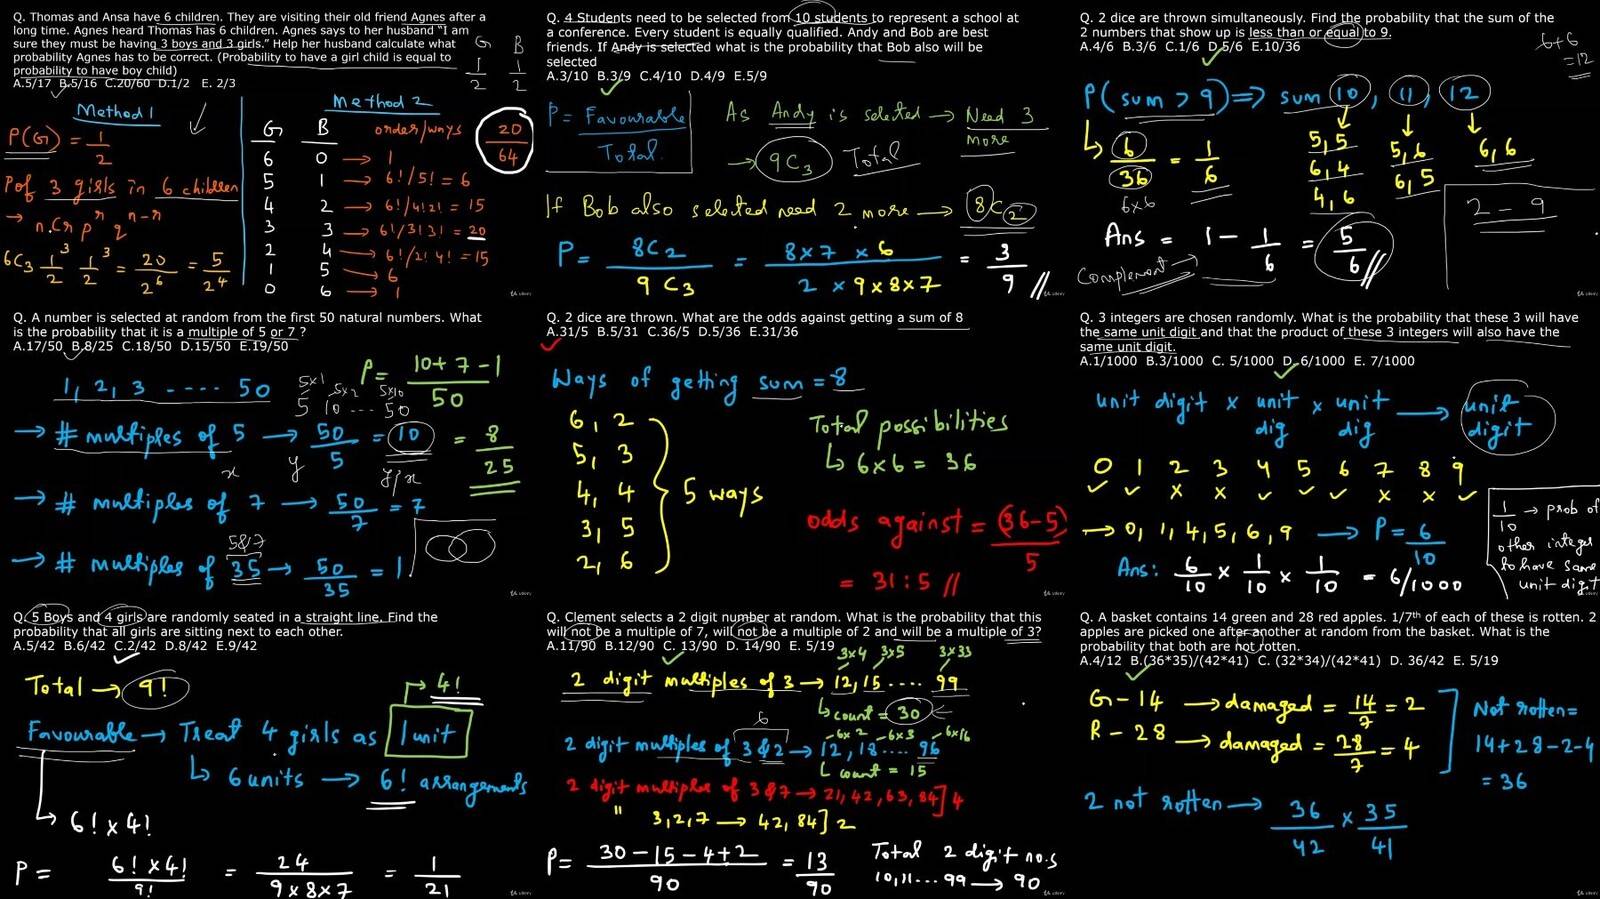 Q. Thomas and Ansa have 6 children. They are visiting their old friend Agnes after a
long time. Agnes heard Thomas has 6 children. Agnes says to her husband "I am
sure they must be having 3 boys and 3 girls." Help her husband calculate what
probability Agnes has to be correct. (Probability to have a girl child is equal to
probability to have boy child)
A.5/17 B.5/16 C.20/60 D.1/2 E. 2/3
G B
1/2 1/2
Method 1
P(G) = 1/2
P of 3 girls in 6 children
→ nCr p^r q^n-r
6C3 1/2^3 1/2^3 = 20/2^6 = 5/2^4
Method 2
G B order/ways
6 0 → 1
5 1 → 6!/5! = 6
4 2 → 6!/4!2! = 15
3 3 → 6!/3!3! = 20
2 4 → 6!/2!4! = 15
1 5 → 6
0 6 → 1
20/64
Q. 4 Students need to be selected from 10 students to represent a school at
a conference. Every student is equally qualified. Andy and Bob are best
friends. If Andy is selected what is the probability that Bob also will be
selected
A.3/10 B.3/9 C.4/10 D.4/9 E.5/9
P = Favourable/Total
As Andy is selected → Need 3
more
→ 9C3 Total
If Bob also selected need 2 more → 8C2
P = 8C2/9C3 = 8×7×6/2×9×8×7 = 3/9 //
Q. 2 dice are thrown simultaneously. Find the probability that the sum of the
2 numbers that show up is less than or equal to 9.
A.4/6 B.3/6 C.1/6 D.5/6 E.10/36
6+6
=12
P(sum > 9) => sum 10, 11, 12
6/36 = 1/6
6×6
5,5 5,6 6,6
6,4 6,5
4,6
2 - 9
Ans = 1 - 1/6 = 5/6 //
Complement →
Q. A number is selected at random from the first 50 natural numbers. What
is the probability that it is a multiple of 5 or 7 ?
A.17/50 B.8/25 C.18/50 D.15/50 E.19/50
1, 2, 3 ----- 50
5×1 5×2 5×10
5 10 ... 50
P = 10+7-1/50
= 8/25
→ # multiples of 5 → 50/5 = 10
x y y/x
→ # multiples of 7 → 50/7 = 7
5&7
→ # multiples of 35 → 50/35 = 1
Q. 2 dice are thrown. What are the odds against getting a sum of 8
A.31/5 B.5/31 C.36/5 D.5/36 E.31/36
Ways of getting sum = 8
6, 2
5, 3
4, 4
3, 5
2, 6
5 ways
Total possibilities
↳ 6×6 = 36
odds against = (36-5)/5
= 31:5 //
Q. 3 integers are chosen randomly. What is the probability that these 3 will have
the same unit digit and that the product of these 3 integers will also have the
same unit digit.
A.1/1000 B.3/1000 C. 5/1000 D. 6/1000 E. 7/1000
unit digit × unit dig × unit dig → unit digit
0 1 2 3 4 5 6 7 8 9
✓ ✓ × × ✓ ✓ ✓ × × ✓
→ 0, 1, 4, 5, 6, 9 → P = 6/10
Ans: 6/10 × 1/10 × 1/10 = 6/1000
1/10 → prob of
other integer
to have same
unit digit
Q. 5 Boys and 4 girls are randomly seated in a straight line. Find the
probability that all girls are sitting next to each other.
A.5/42 B.6/42 C.2/42 D.8/42 E.9/42
Total → 9!
→ 4!
Favourable → Treat 4 girls as 1 unit
↳ 6 units → 6! arrangements
↳ 6! × 4!
P = 6!×4!/9! = 24/9×8×7 = 1/21
Q. Clement selects a 2 digit number at random. What is the probability that this
will not be a multiple of 7, will not be a multiple of 2 and will be a multiple of 3?
A.11/90 B.12/90 C. 13/90 D. 14/90 E. 5/19
3×4 3×5 3×33
2 digit multiples of 3 → 12, 15 .... 99
↳ count = 30
6
6×2 6×3 6×16
2 digit multiples of 3 & 2 → 12, 18 ... 96
↳ count = 15
2 digit multiples of 3 & 7 → 21, 42, 63, 84] 4
" 3, 2, 7 → 42, 84] 2
P = 30-15-4+2/90 = 13/90
Total 2 digit no.s
10, 11 ... 99 → 90
Q. A basket contains 14 green and 28 red apples. 1/7th of each of these is rotten. 2
apples are picked one after another at random from the basket. What is the
probability that both are not rotten.
A.4/12 B.(36*35)/(42*41) C. (32*34)/(42*41) D. 36/42 E. 5/19
G - 14 → damaged = 14/7 = 2
R - 28 → damaged = 28/7 = 4
Not rotten =
14+28-2-4
= 36
2 not rotten → 36/42 × 35/41